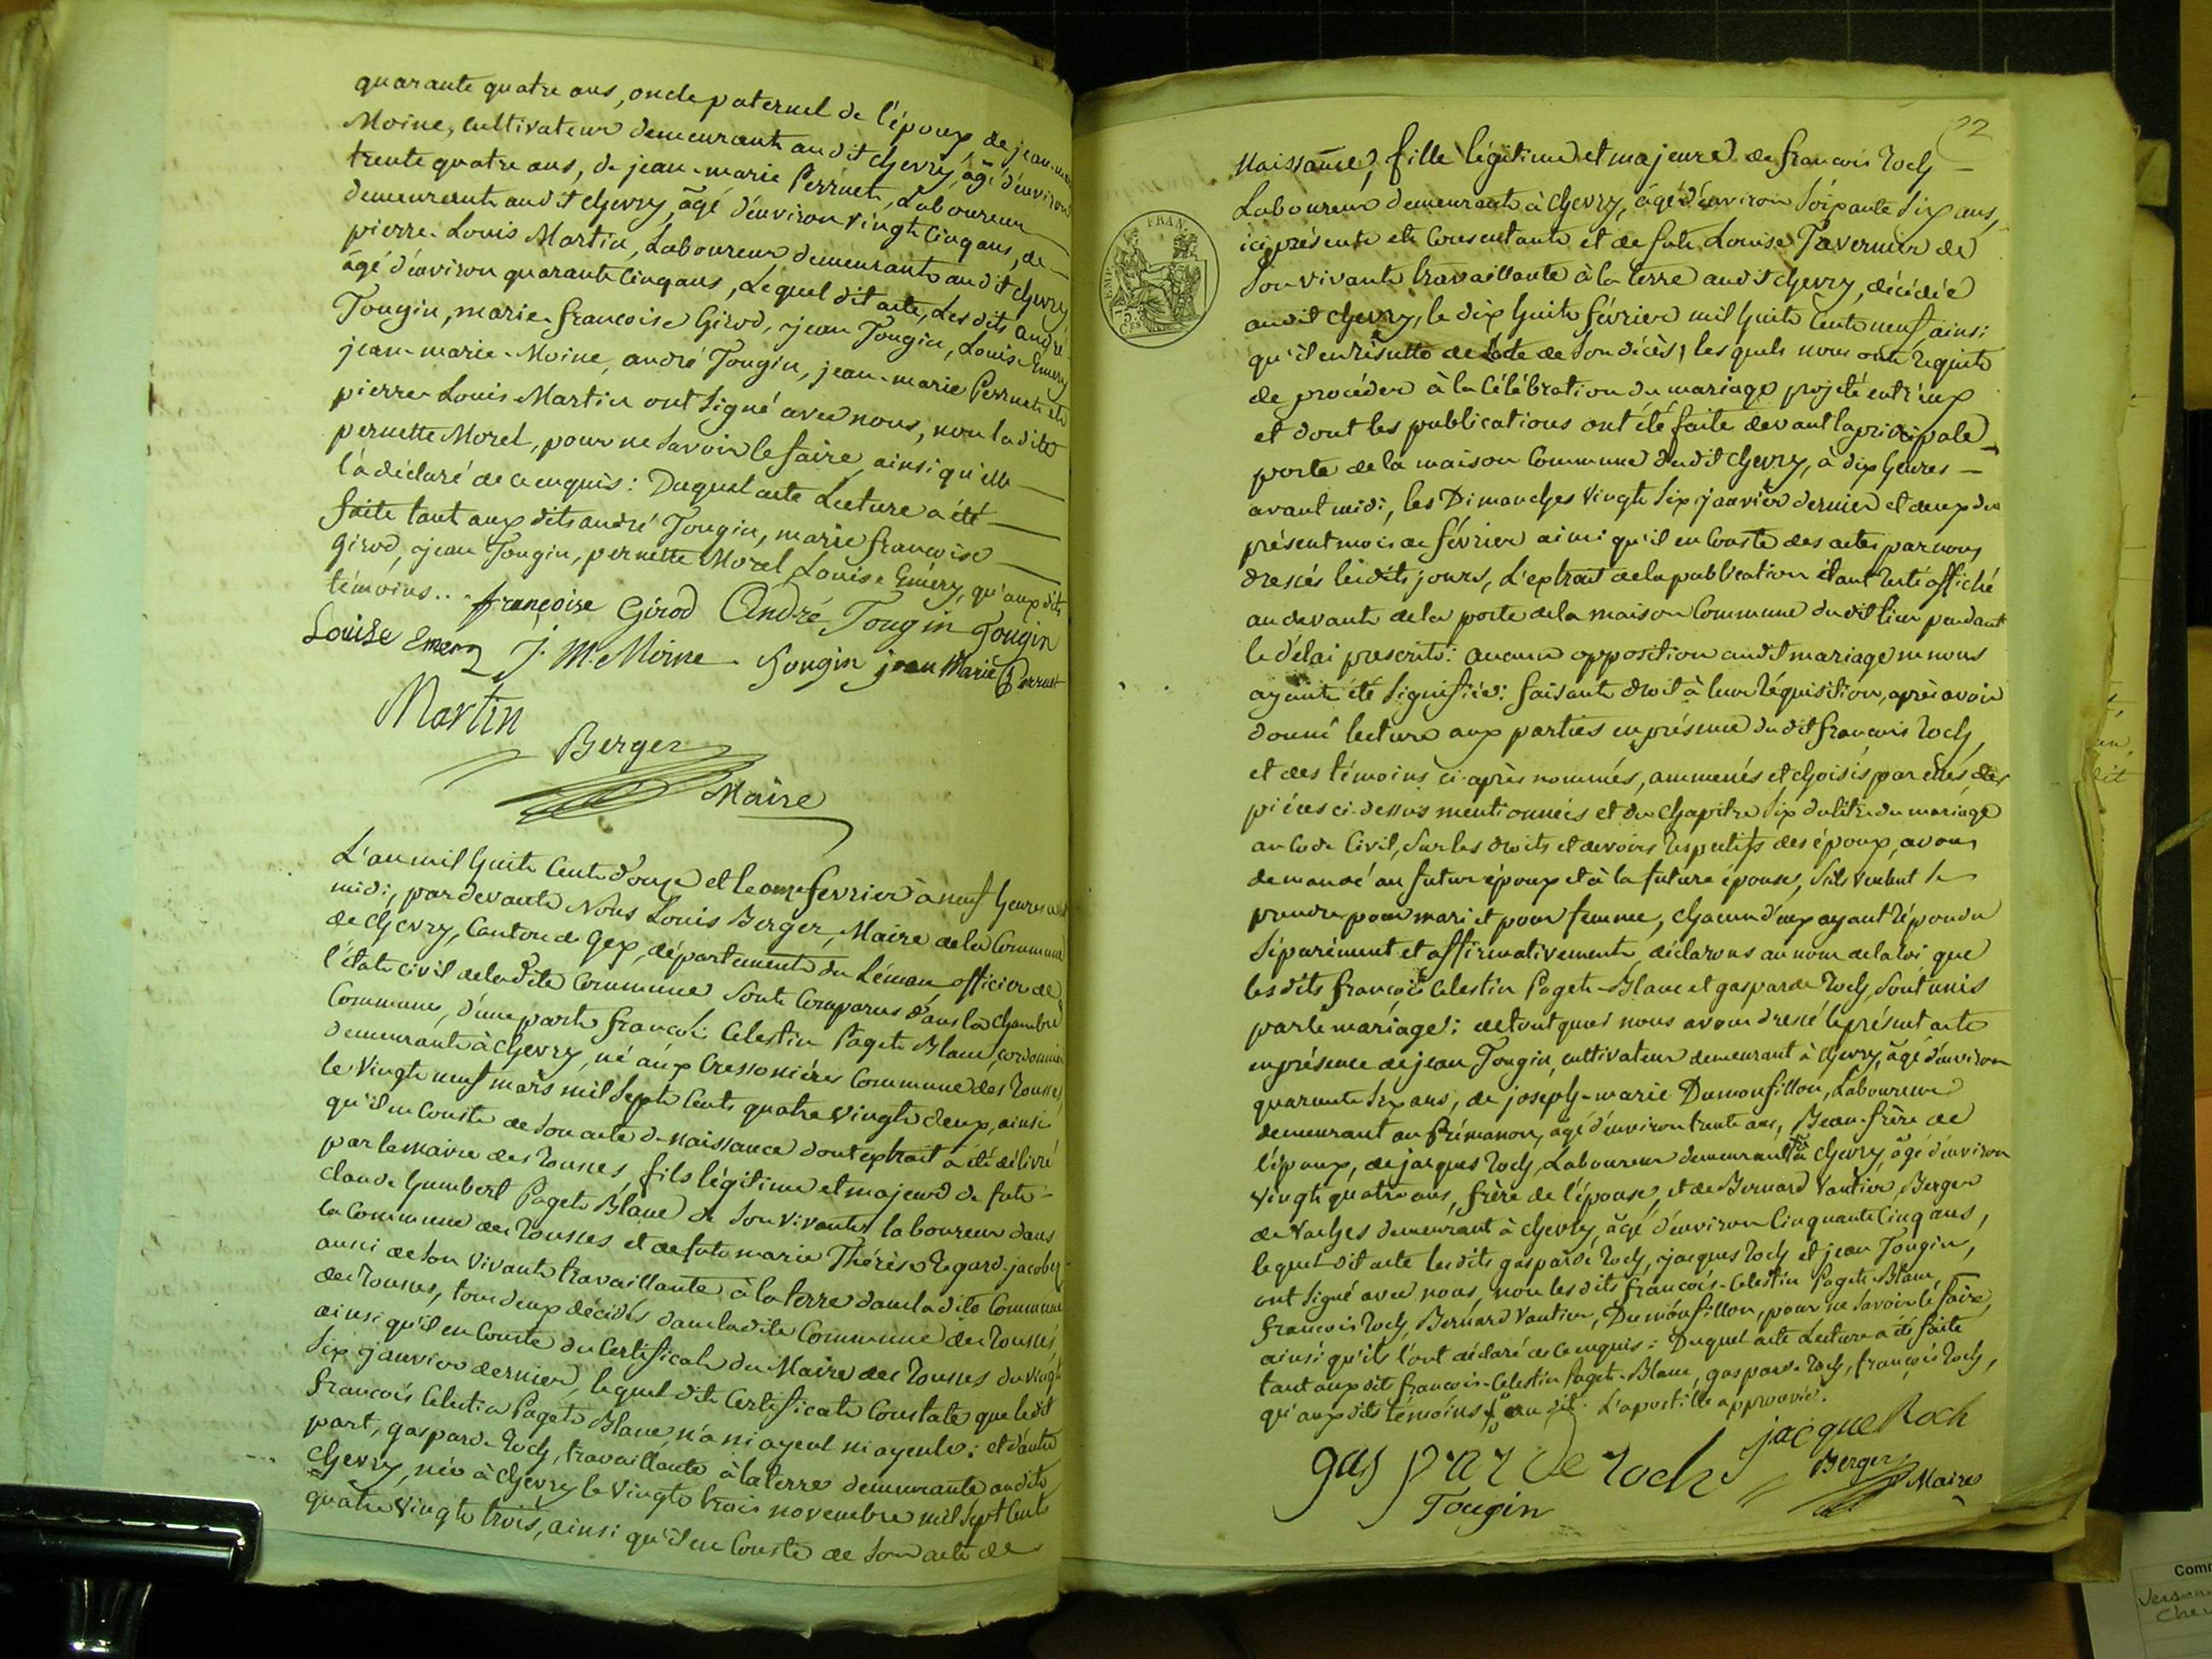 quarante quatre ans, oncle paternel de l'époux, de jean-marie
Moine, cultivateur demeurant audit chevry, âgé d'environ
trente quatre ans, de jean-marie Perruet, Laboureur
demeurant audit chevry, âgé d'environ vingt cinq ans, de
pierre Louis Martin, Laboureur demeurant audit chevry
âgé d'environ quarante cinq ans, Lequel dit acte, Les dits andré
Tougin, marie francoise Girod, jean Tougin, Louise Emery
jean-marie Moine, andré Tougin, jean-marie Perruet et
pierre Louis Martin ont signé avec nous, non ladite
pernette Morel, pour ne savoir le faire, ainsi qu'elle
l'a déclaré de ce enquis: Duquel acte Lecture a été
faite tant aux dits andré Tougin, marie francoise
Girod, jean Tougin, pernette Morel, Louise Emery, qu'aux dits
témoins... françoise Girod André Tougin Tougin
Louise Emery J. M. Moine Tougin jean Marie Perruet
Martin
Berger
Maire
L'an mil huit cent douze et le onze février à neuf heures avant
midi, pardevant Nous Louis Berger, Maire de la Commune
de chevry, Canton de Gex, département du Léman, officier de
l'état civil de ladite Commune sont Comparus dans la chambre
Commune, d'une part francois Celestin Paget-Blanc, cordonnier
demeurant à chevry, né aux Cressonières Commune des Rousses,
le vingt neuf mars mil sept cent quatre vingt deux, ainsi
qu'il en Conste de son acte de naissance dont extrait a été délivré
par le maire des Rousses, fils légitime et majeur de feu
claude humbert Paget-Blanc de son vivant laboureur dans
la Commune des Rousses et de feue marie Thérèse Regard-jacobez
aussi de son vivant travaillante à la terre dans ladite Commune
des Rousses, tous deux décédés dans ladite Commune des Rousses,
ainsi qu'il en Conste du Certificat du Maire des Rousses du vingt
six janvier dernier, lequel dit Certificat Constate que ledit
francois Celestin Paget-Blanc n'a ni ayeul ni ayeule; et d'autre
part, gasparde Roch, travaillante à la terre demeurante audit
chevry, née à chevry le vingt trois novembre mil sept cent
quatre vingt trois, ainsi qu'il en Conste de son acte de
22
naissance, fille légitime et majeure de francois Roch
Laboureur demeurant à chevry, âgé d'environ soixante six ans,
ici présent et Consentant et de feue Louise Tavernier de
son vivant travaillante à la terre audit chevry, décédée
audit chevry, le dix huit février mil huit cent neuf, ainsi
qu'il en résulte de l'acte de son décès; les quels nous ont requis
de procéder à la Célébration du mariage projeté entr'eux
et dont les publications ont été faite devant la principale
porte de la maison Commune dudit chevry, à dix heures
avant midi, les Dimanches vingt six janvier dernier et deux du
présent mois de février ainsi qu'il en Conste des actes par nous
dressés lesdits jours, L'extrait de la publication étant resté affiché
au devant de la porte de la maison Commune du dit lieu pendant
le délai prescrit: aucune opposition audit mariage ne nous
ayant été signifiée: faisant droit à leur réquisition, après avoir
donné lecture aux parties en présence du dit francois Roch,
et des témoins ci-après nommés, ammenés et choisis par elles, des
pièces ci-dessus mentionnées et du chapitre six du titre du mariage
au Code Civil, sur les droits et devoirs respectifs des époux, avons
demandé au futur époux et à la future épouse, s'ils veulent se
prendre pour mari et pour femme, chacun d'eux ayant répondu
séparément et affirmativement, déclarons au nom de la loi que
les dits francois Celestin Paget-Blanc et gasparde Roch, sont unis
par le mariage: de tout quoi nous avons dressé le présent acte
en présence de jean Tougin, cultivateur demeurant à chevry, âgé d'environ
quarante six ans, de joseph-marie Dumonfillon, Laboureur
demeurant au Prémanon, âgé d'environ trente ans, Beau-frère de
l'époux, de jacques Roch, Laboureur demeurant à chevry, âgé d'environ
vingt quatre ans, frère de l'épouse, et de Bernard Vautier, Berger
de Vaches demeurant à chevry, âgé d'environ Cinquante Cinq ans,
lequel dit acte lesdits gasparde Roch, jacques Roch et jean Tougin,
ont signé avec nous, non les dits francois-Celestin Paget-Blanc,
francois Roch, Bernard Vautier, Dumonfillon, pour ne savoir le faire,
ainsi qu'ils l'ont déclaré de ce enquis: Duquel acte Lecture a été faite
tant aux dits francois-Celestin Paget-Blanc, gasparde Roch, françois Roch,
qu'aux dits témoins L'apostille approuvée.
gasparde roch jacque Roch
Tougin Berger Maire